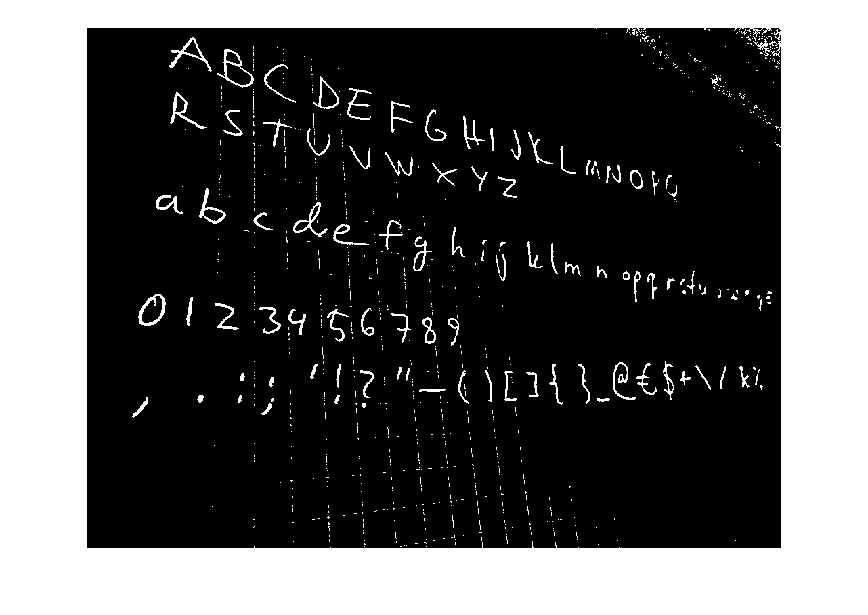 A B C D E F G H I J K L M N O P Q
R S T U V W X Y Z
a b c d e f g h i j k l m n o p q r s t u
0 1 2 3 4 5 6 7 8 9
, . : ; ' ! ? " - ( ) [ ] { } _ @ € $ + \ / k %